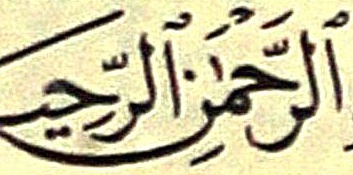 ٱلرَّحْمَٰنِ ٱلرَّحِيـ